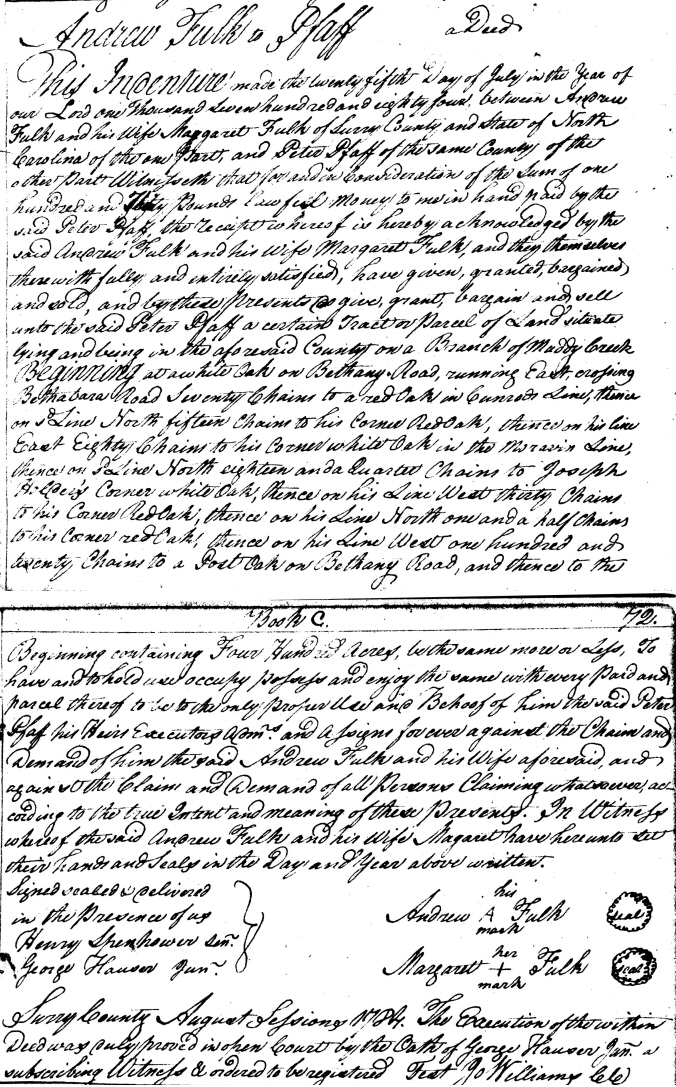 Andrew Fulk to Pfaff a Deed
This Indenture made the twenty fifth Day of July in the Year of
our Lord one Thousand seven hundred and eighty four, between Andrew
Fulk and his Wife Margaret Fulk of Surry County and State of North
Carolina of the one Part, and Peter Pfaff of the same County of the
other Part Witnesseth that for and in Consideration of the Sum of one
hundred and Pounds lawfull Money to me in hand paid by the
said Peter Pfaff, the receipt whereof is hereby acknowledged by the
said Andrew Fulk and his Wife Margaret Fulk, and they themselves
therewith fully and entirely satisfied, have given, granted, bargained
and sold, and by these Presents do give, grant, bargain and sell
unto the said Peter Pfaff a certain Tract or Parcel of Land situate
lying and being in the aforesaid County on a Branch of Muddy Creek
Beginning at a white Oak on Bethany Road, running East, crossing
Bethabara Road Seventy Chains to a red Oak in Cunrods Line, thence
on sd Line North fifteen Chains to his Corner Red Oak, thence on his line
East Eighty Chains to his Corner white Oak in the Moravin Line,
thence on sd Line North eighteen and a Quarter Chains to Joseph
Corner white Oak, thence on his Line West thirty Chains
to his Corner Red Oak, thence on his Line North one and a half Chains
to his Corner red Oak, thence on his Line West one hundred and
twenty Chains to a Post Oak on Bethany Road, and thence to the
Book C. 72.
Beginning containing Four Hundred Acres, be the same more or Less, To
have and to hold use occupy possess and enjoy the same with every Part and
parcel thereof to be to the only proper Use and Behoof of him the said Peter
Pfaff his Heirs Executors Adms and Assigns forever against the Claim and
Demand of him the said Andrew Fulk and his Wife aforesaid, and
against the Claim and Demand of all Persons Claiming whatsoever, ac
cording to the true Intent and meaning of these Presents. In Witness
whereof the said Andrew Fulk and his Wife Magaret have hereunto set
their hands and Seals in the Day and Year above written.
Signed sealed & delivered
in the Presence of us
Henry Spenhower Senr.
George Hauser Junr.
his
Andrew A Fulk seal
mark
her
Margaret + Fulk seal
mark
Surry County August Sessions 1784. The Execution of the within
Deed was duly proved in open Court by the Oath of George Hauser Junr. a
subscribing Witness & ordered to be registered Test Jo Williams CC